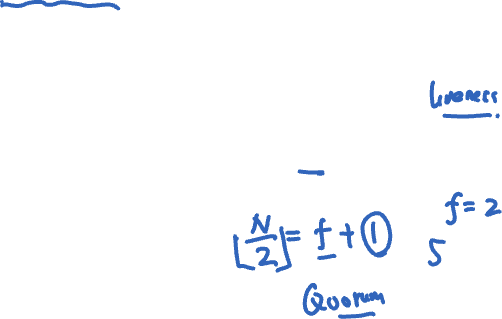 Liveness.
f = 2
⌊N/2⌋ = f + 1 5
Quorum